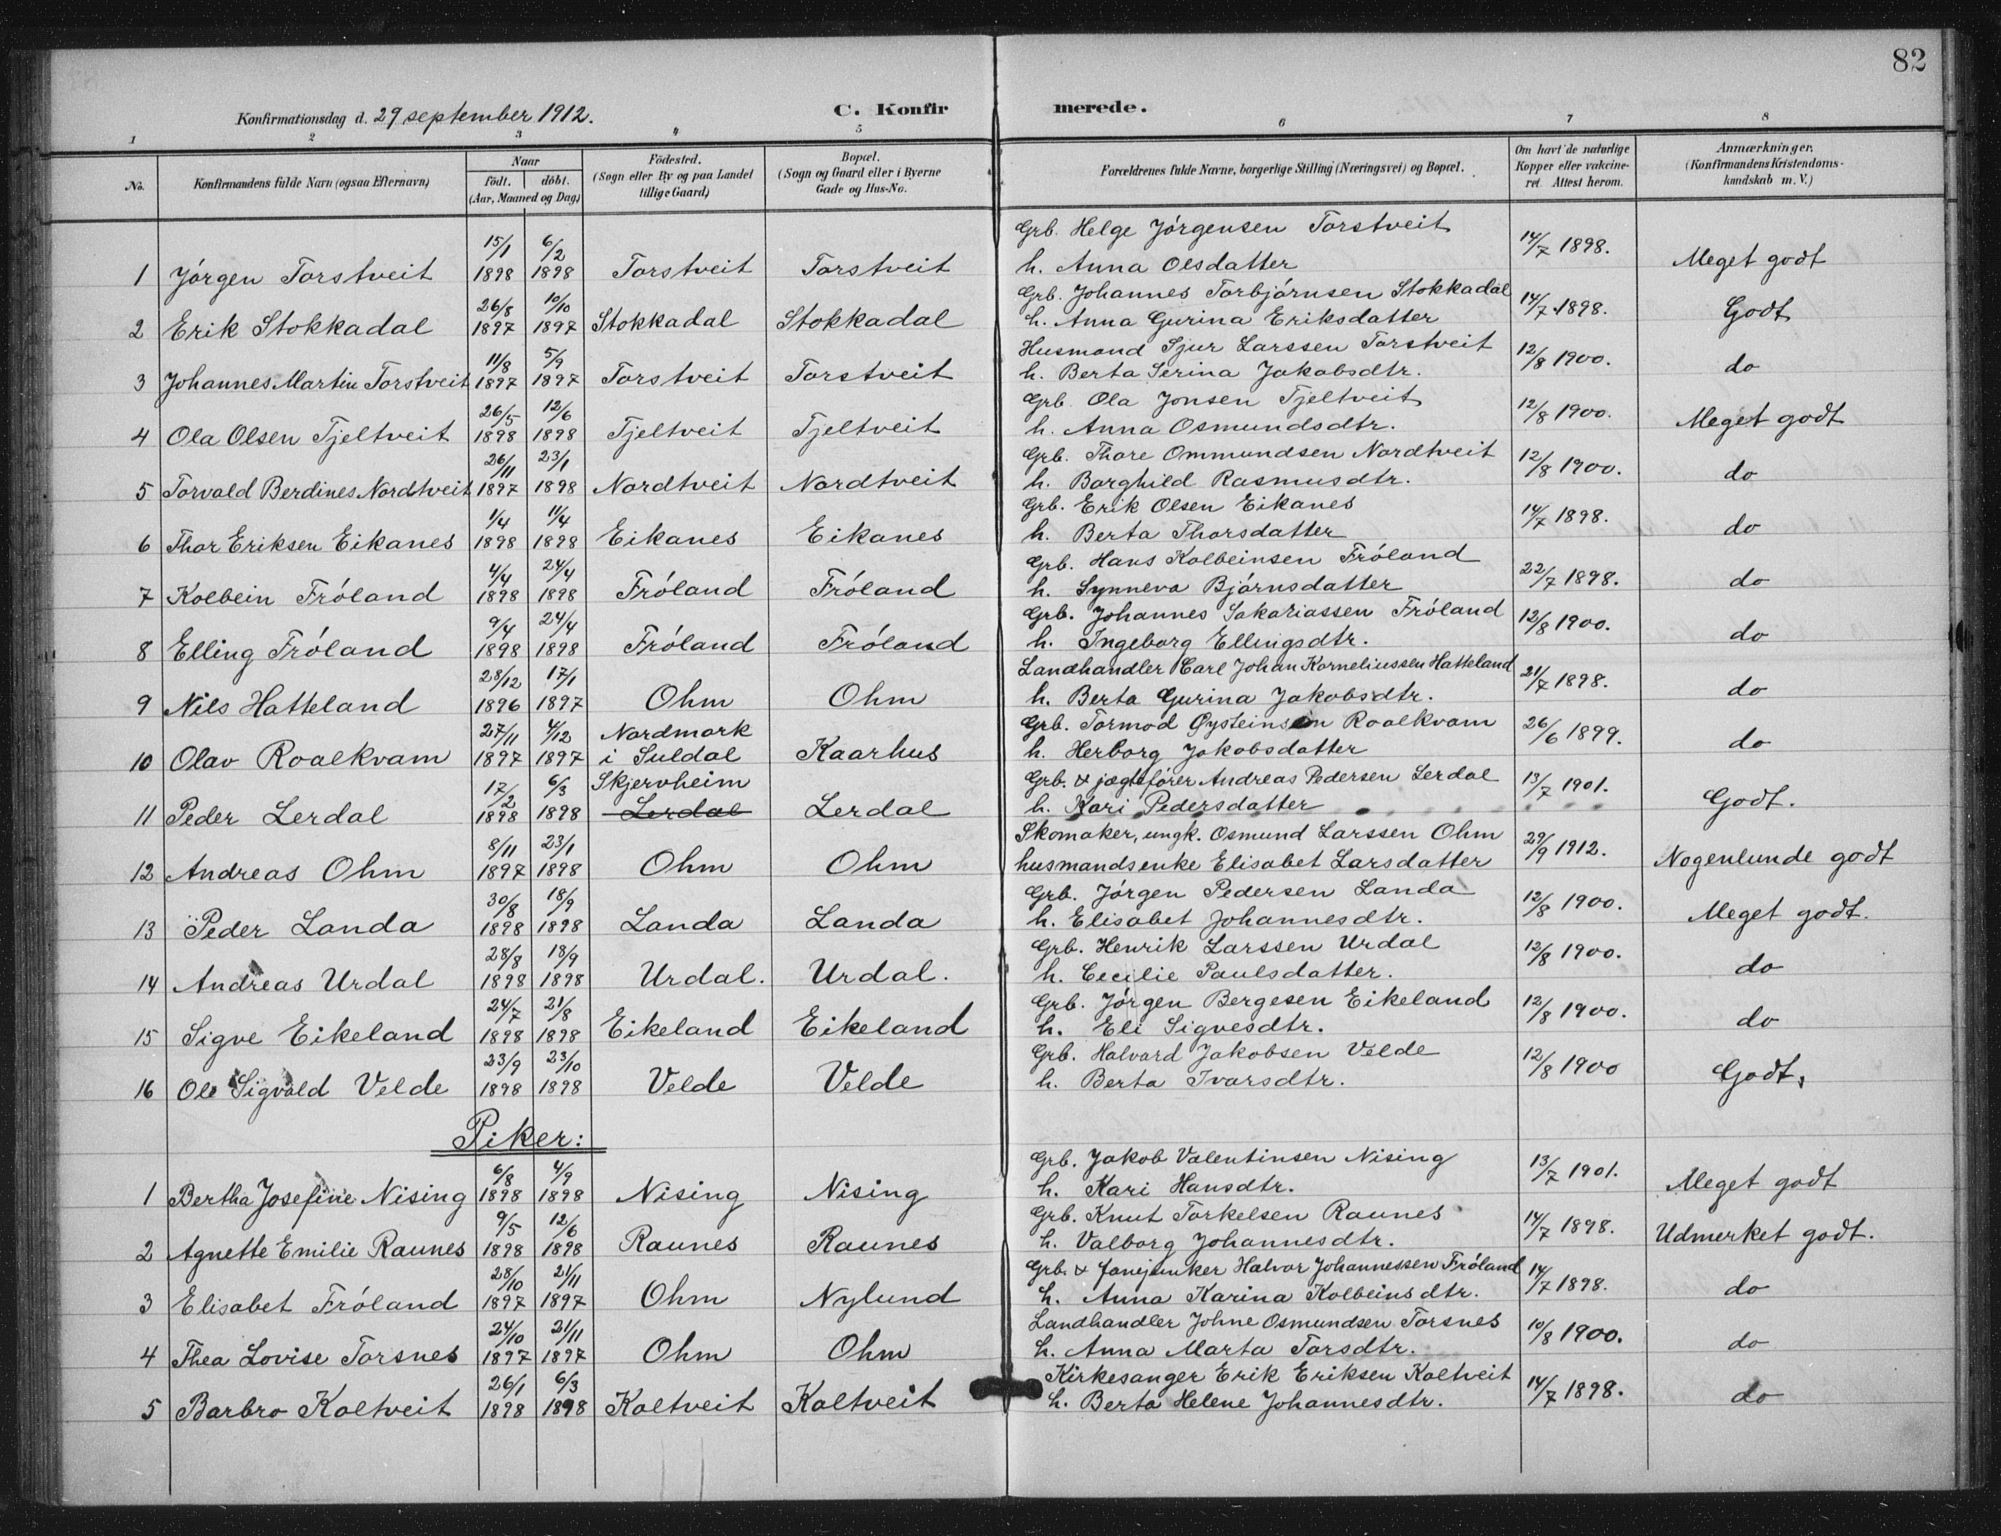 82
Konfirmationsdag d. 29 september 1912. C. Konfirmerede.
1 2 3 4 5 6 7 8
No. Konfirmandens fulde Navn (ogsaa Efternavn) Naar födt. döbt. (Aar, Maaned og Dag) Födested. (Sogn eller By og paa Landet tillige Gaard) Bopæl. (Sogn og Gaard eller i Byerne Gade og Hus-No. Forældrenes fulde Navne, borgerlige Stilling (Næringsvei) og Bopæl. Om havt de naturlige Kopper eller vakcineret. Attest herom. Anmærkninger. (Konfirmandens Kristendomskundskab m. V.)
1 Jörgen Torstveit 15/1 1898 6/2 1898 Torstveit Torstveit Grb. Helge Jörgensen Torstveit h. Anna Olsdatter 14/7 1898. Meget godt
2 Erik Stokkadal 26/8 1897 10/10 1897 Stokkadal Stokkadal Grb. Johannes Torbjörnsen Stokkadal h. Anna Gurina Eriksdatter 14/7 1898. Godt
3 Johannes Martin Torstveit 11/8 1897 5/9 1897 Torstveit Torstveit Husmand Sjur Larssen Torstveit h. Berta Serina Jakobsdtr. 12/8 1900. do
4 Ola Olsen Tjeltveit 26/5 1898 12/6 1898 Tjeltveit Tjeltveit Grb. Ola Jonsen Tjeltveit h. Anna Osmundsdtr. 12/8 1900. Meget godt
5 Torvald Berdines Nordtveit 26/11 1897 23/1 1898 Nordtveit Nordtveit Grb. Thore Ommundsen Nordtveit h. Borghild Rasmusdtr. 12/8 1900. do
6 Thor Eriksen Eikanes 1/4 1898 11/4 1898 Eikanes Eikanes Grb. Erik Olsen Eikanes h. Berta Thorsdatter 14/7 1898. do
7 Kolbein Fröland 4/4 1898 24/4 1898 Fröland Fröland Grb. Hans Kolbeinsen Fröland h. Synneva Björnsdatter 22/7 1898. do
8 Elling Fröland 9/4 1898 24/4 1898 Fröland Fröland Grb. Johannes Sakariassen Fröland h. Ingeborg Ellingsdtr. 12/8 1900. do
9 Nils Hatteland 28/12 1896 17/1 1897 Ohm Ohm Landhandler Carl Johan Korneliussen Hatteland h. Berta Gurina Jakobsdtr. 21/7 1898. do
10 Olav Roalkvam 27/11 1897 4/12 1897 Nordmork i Suldal Kaarhus Grb. Tormod Øysteinsen Roalkvam h. Herborg Jakobsdatter 26/6 1899. do
11 Peder Lerdal 17/2 1898 6/3 1898 Skjervheim Lerdal Lerdal Grb. & jægtefører Andreas Pedersen Lerdal h. Kari Pedersdatter 13/7 1901. Godt.
12 Andreas Ohm 8/11 1897 23/1 1898 Ohm Ohm Skomaker, ungk. Osmund Larssen Ohm husmandsenke Elisabet Larsdatter 29/9 1912. Nogenlunde godt
13 Peder Landa 30/8 1898 18/9 1898 Landa Landa Grb. Jörgen Pedersen Landa h. Elisabet Johannesdtr. 12/8 1900. Meget godt.
14 Andreas Urdal 28/8 1898 18/9 1898 Urdal. Urdal. Grb. Henrik Larssen Urdal h. Cecilie Paulsdatter. 12/8 1900. do
15 Sigve Eikeland 24/7 1898 21/8 1898 Eikeland Eikeland Grb. Jörgen Bergesen Eikeland h. Eli Sigvesdtr. 12/8 1900. do
16 Ole Sigvald Velde 23/9 1898 23/10 1898 Velde Velde Grb. Halvard Jakobsen Velde h. Berta Ivarsdtr. 12/8 1900 Godt.
Piker:
1 Bertha Josefine Nising 6/8 1898 4/9 1898 Nising Nising Grb. Jakob Valentinsen Nising h. Kari Hansdtr. 13/7 1901. Meget godt
2 Agnette Emilie Raunes 9/5 1898 12/6 1898 Raunes Raunes Grb. Knut Torkelsen Raunes h. Valborg Johannesdtr. 14/7 1898. Udmerket godt.
3 Elisabet Fröland 28/10 1897 21/11 1897 Ohm Nylund Grb. & fanejunker Halvor Johannessen Fröland h. Anna Karina Kolbeinsdtr. 14/7 1898. do
4 Thea Lovise Torsnes 24/10 1897 21/11 1897 Ohm Ohm Landhandler Johne Osmundsen Torsnes h. Anna Marta Torsdtr. 10/8 1900. do
5 Barbro Koltveit 26/1 1898 6/3 1898 Koltveit Koltveit Kirkesanger Erik Eriksen Koltveit h. Berta Helene Johannesdtr. 14/7 1898. do